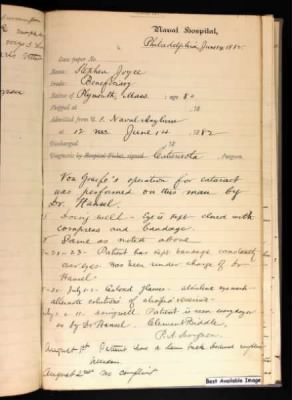 Naval Hospital,
Philadelphia June 14 1882.
Case paper No.
Name: Stephen Joyce
Grade: Beneficiary
Native of Plymouth, Mass : age 80
Shipped at 18
Admitted from U. S. Naval Asylum
at 12 M June 14 1882
Discharged 18
Diagnosis by Hospital Ticket, signed Cataracta Surgeon.
Von Graefe's operation for cataract
was performed on this man by
Dr. Hansel.
Doing well - Eye is kept closed with
compress and bandage.
Same as noted above
Patient has kept bandage constantly
over eyes has been under charge of Dr
Hansel
July Colored glasses
alternate solutions of
doing well Patient is seen every day
or so by Dr. Hansel. Clement Biddle,
P. A. Surgeon
August 1st Patient has a lame back
August 2nd no complaint
Best Available Image